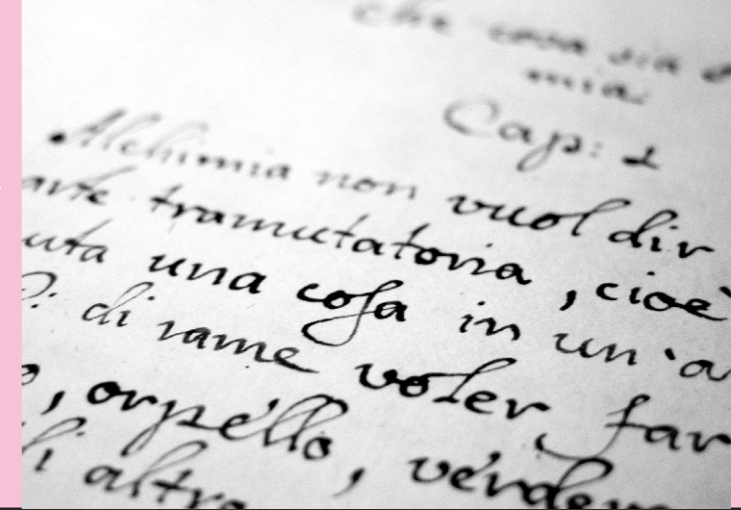 che cosa sia
mia.
Cap: 1
Alchimia non vuol dir
arte tramutatoria, cioè
uta una cosa in un'a
P: di rame voler far
, orpello, verdem
li altro